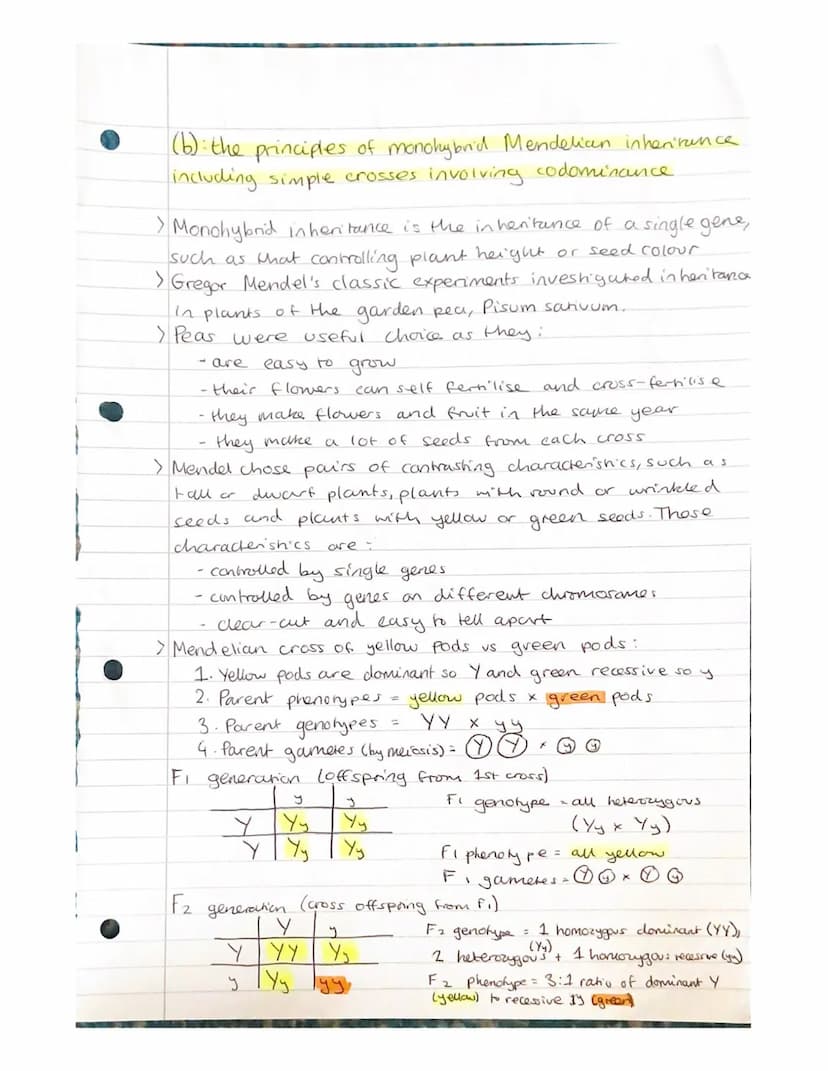 (b): the principles of monohybrid Mendelian inheritance
including simple crosses involving codominance
> Monohybrid inheritance is the inheritance of a single gene,
such as that controlling plant height or seed colour
> Gregor Mendel's classic experiments investigated inheritance
in plants of the garden pea, Pisum sativum.
> Peas were useful choice as they:
- are easy to grow
- their flowers can self fertilise and cross-fertilise
- they make flowers and fruit in the same year
- they make a lot of seeds from each cross
> Mendel chose pairs of contrasting characteristics, such as
tall or dwarf plants, plants with round or wrinkled
seeds and plants with yellow or green seeds. These
characteristics are:
- controlled by single genes
- controlled by genes on different chromosomes
- clear-cut and easy to tell apart
> Mendelian cross of yellow pods vs green pods:
1. Yellow pods are dominant so Y and green recessive so y
2. Parent phenotypes = yellow pods x green pods
3. Parent genotypes = YY x yy
4. Parent gametes (by meiosis) = Y Y x y y
F1 generation (offspring from 1st cross)
y y
Y Yy Yy
Y Yy Yy
F1 genotype = all heterozygous
(Yy x Yy)
F1 phenotype = all yellow
F1 gametes = Y y x Y y
F2 generation (cross offspring from F1)
Y y
Y YY Yy
y Yy yy
F2 genotype = 1 homozygous dominant (YY),
2 heterozygous (Yy) + 1 homozygous recessive (yy)
F2 phenotype = 3:1 ratio of dominant Y
(yellow) to recessive (green)